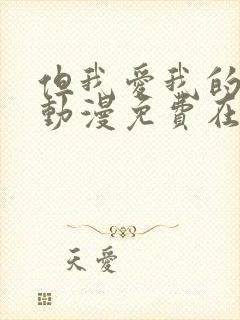 但我愛我的
動漫免費在
天愛